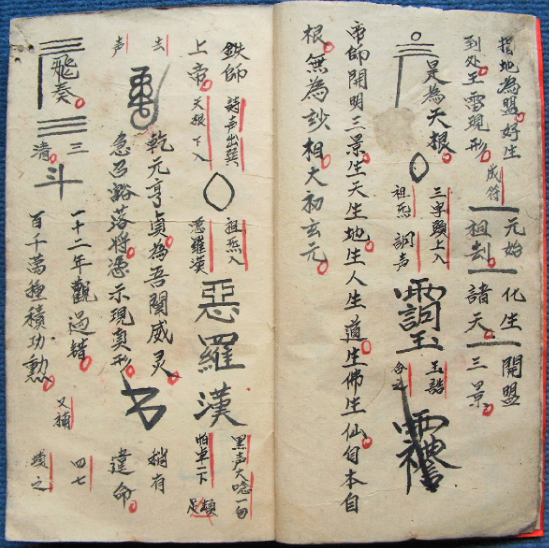 指地為盟好生
到处王雷现形
成符
元始
祖刦
化生
諸天
開盟
三景
是為天根
三字頭上入
祖炁
詞声
玉誥
帝師開明三景生天生地生人生道生佛生仙自本自
根無為玅相大初玄元
鉄師
声出
祖炁入
上帝
天根下入
惡羅漢
惡羅漢
黑声大唸一句
怕卓一下
足頓
去
声
乾元亨貞為吾開威灵
急召豁落將憑示現真形
稍有
違命
飛奏
三
清
斗
一十二年觀過錯
百千萬種積功勲
又補
四七